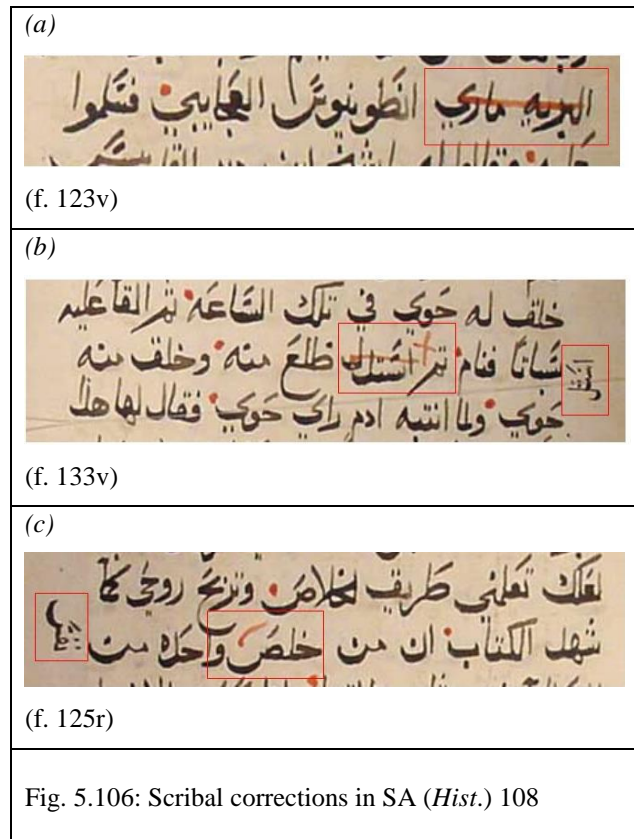 (a)
البريه ماري انطونيوس العجايبي فسَلموا
(f. 123v)
(b)
خلف له حَوي في تلك السَاعَه تم القا عليه
سَباتًا فنام تم استل ظلعَ منه وخلف منه
حَوي ولما انتبه ادم راي حَوي فقال لها هدا
(f. 133v)
(c)
لعَلك تعَلمني طريق الخلاصَ وتربحَ روحي كما
شهد الكتاب ان من خلصَ وحَده من
نفس
(f. 125r)
Fig. 5.106: Scribal corrections in SA (Hist.) 108